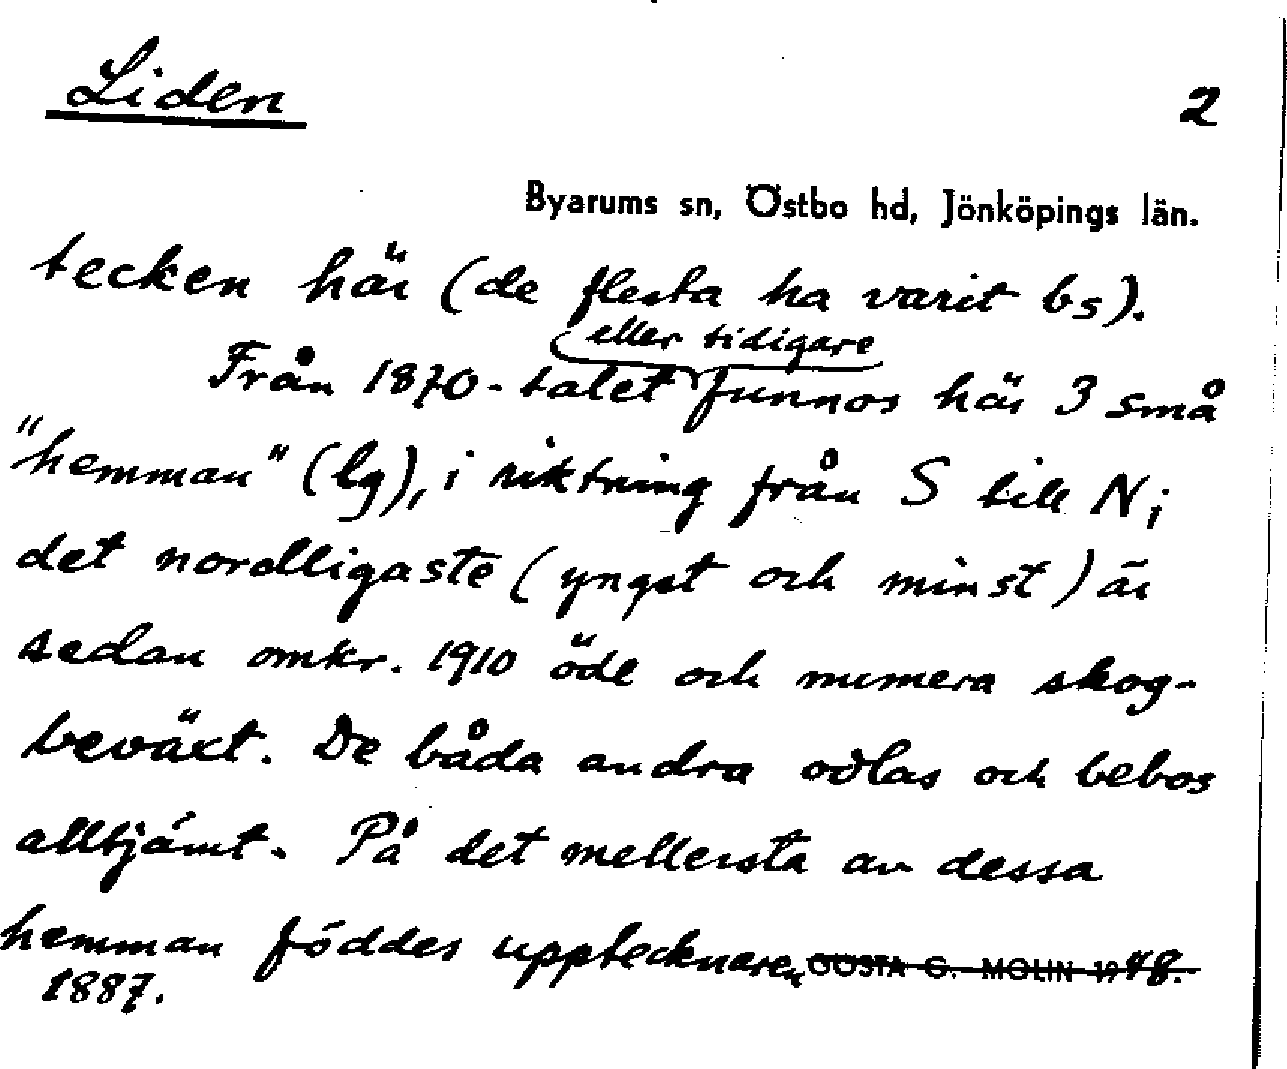 Liden
2
Byarums sn, Östbo hd, Jönköpings län.
tecken här (de flesta ha varit bs).
eller tidigare
Från 1870-talet funnos här 3 små
"hemman" (lg), i riktning från S till N;
det nordligaste (yngst och minst) är
sedan omkr. 1910 öde och numera skog-
beväxt. De båda andra odlas och bebos
alltjämt. På det mellersta av dessa
hemman föddes upptecknaren GÖSTA G. MOLIN 1948.
1887.